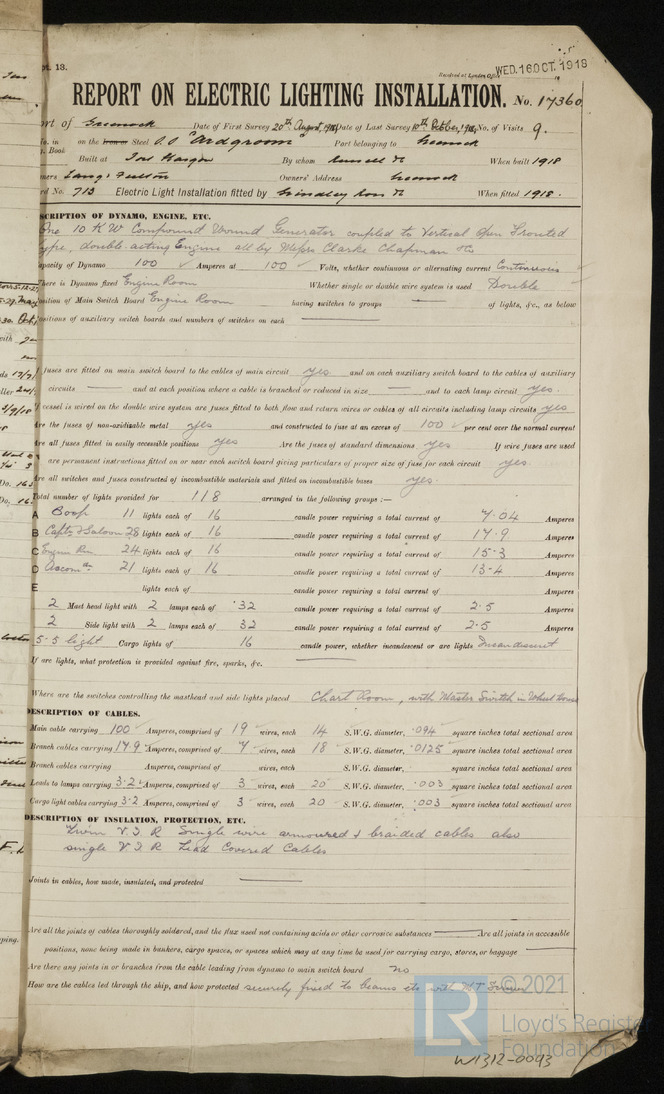 pt. 13.
Received at London Office WED. 16 OCT. 1918
REPORT ON ELECTRIC LIGHTING INSTALLATION. No. 17360
ort of Greenock Date of First Survey 20th August, 1918 Date of Last Survey 10th October, 1918 No. of Visits 9.
No. in on the Iron or Steel S.S "Ardgroom" Port belonging to Greenock
g. Book Built at Port Glasgow By whom Russell & Co When built 1918
ners Lang & Fulton Owners' Address Greenock
rd No. 713 Electric Light Installation fitted by Grindley Son & Co When fitted 1918.
SCRIPTION OF DYNAMO, ENGINE, ETC.
One 10 KW Compound Wound Generator coupled to Vertical Open Fronted
type, double-acting Engine all by Messrs Clarke Chapman & Co
apacity of Dynamo 100 Amperes at 100 Volts, whether continuous or alternating current Continuous
here is Dynamo fixed Engine Room Whether single or double wire system is used Double
osition of Main Switch Board Engine Room having switches to groups — of lights, &c., as below
ositions of auxiliary switch boards and numbers of switches on each —
f fuses are fitted on main switch board to the cables of main circuit yes and on each auxiliary switch board to the cables of auxiliary
circuits — and at each position where a cable is branched or reduced in size — and to each lamp circuit yes.
vessel is wired on the double wire system are fuses fitted to both flow and return wires or cables of all circuits including lamp circuits yes
Are the fuses of non-oxidizable metal yes and constructed to fuse at an excess of 100 per cent over the normal current
Are all fuses fitted in easily accessible positions yes Are the fuses of standard dimensions yes If wire fuses are used
are permanent instructions fitted on or near each switch board giving particulars of proper size of fuse for each circuit yes.
Are all switches and fuses constructed of incombustible materials and fitted on incombustible bases yes.
Total number of lights provided for 118 arranged in the following groups :—
A Poop 11 lights each of 16 candle power requiring a total current of 7.04 Amperes
B Capts & Saloon 28 lights each of 16 candle power requiring a total current of 17.9 Amperes
C Engine Rm. 24 lights each of 16 candle power requiring a total current of 15.3 Amperes
D Accomdn. 21 lights each of 16 candle power requiring a total current of 13.4 Amperes
E lights each of candle power requiring a total current of Amperes
2 Mast head light with 2 lamps each of 32 candle power requiring a total current of 2.5 Amperes
2 Side light with 2 lamps each of 32 candle power requiring a total current of 2.5 Amperes
5-5 light Cargo lights of 16 candle power, whether incandescent or arc lights Incandescent
If arc lights, what protection is provided against fire, sparks, &c. —
Where are the switches controlling the masthead and side lights placed Chart Room, with Master Switch in Wheel House
DESCRIPTION OF CABLES.
Main cable carrying 100 Amperes, comprised of 19 wires, each 14 S.W.G. diameter, .094 square inches total sectional area
Branch cables carrying 17.9 Amperes, comprised of 7 wires, each 18 S.W.G. diameter, .0125 square inches total sectional area
Branch cables carrying Amperes, comprised of wires, each S.W.G. diameter, square inches total sectional area
Leads to lamps carrying 3.2 Amperes, comprised of 3 wires, each 20 S.W.G. diameter, .003 square inches total sectional area
Cargo light cables carrying 3.2 Amperes, comprised of 3 wires, each 20 S.W.G. diameter, .003 square inches total sectional area
DESCRIPTION OF INSULATION, PROTECTION, ETC.
Twin V.I.R Single wire armoured & braided cables also
single V.I.R Lead Covered Cables
Joints in cables, how made, insulated, and protected —
Are all the joints of cables thoroughly soldered, and the flux used not containing acids or other corrosive substances — Are all joints in accessible
positions, none being made in bunkers, cargo spaces, or spaces which may at any time be used for carrying cargo, stores, or baggage —
Are there any joints in or branches from the cable leading from dynamo to main switch board no
How are the cables led through the ship, and how protected securely fixed to beams etc with
LR © 2021
Lloyd's Register
Foundation
W1312-0093